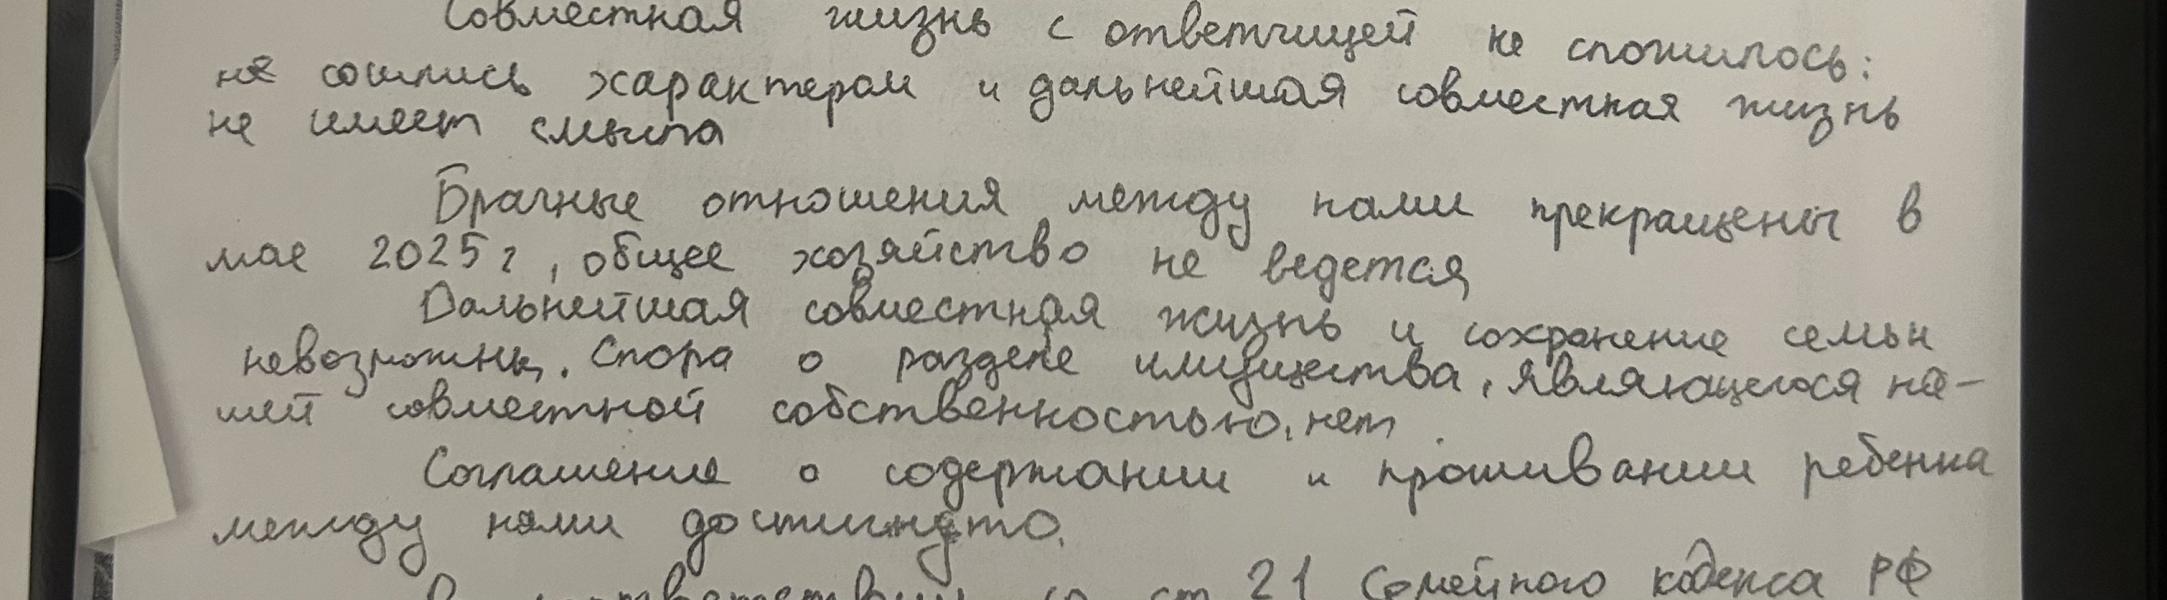 Совместная жизнь с ответчицей не сложилось:
не сошлись характером и дальнейшая совместная жизнь
не имеет смысла
Брачные отношения между нами прекращены в
мае 2025г, общее хозяйство не ведется
Дальнейшая совместная жизнь и сохранение семьи
невозможны. Спора о разделе имущества, являющегося на-
шей совместной собственностью, нет.
Соглашение о содержании и проживании ребенка
между нами достигнуто.
ст 21 Семейного кодекса РФ